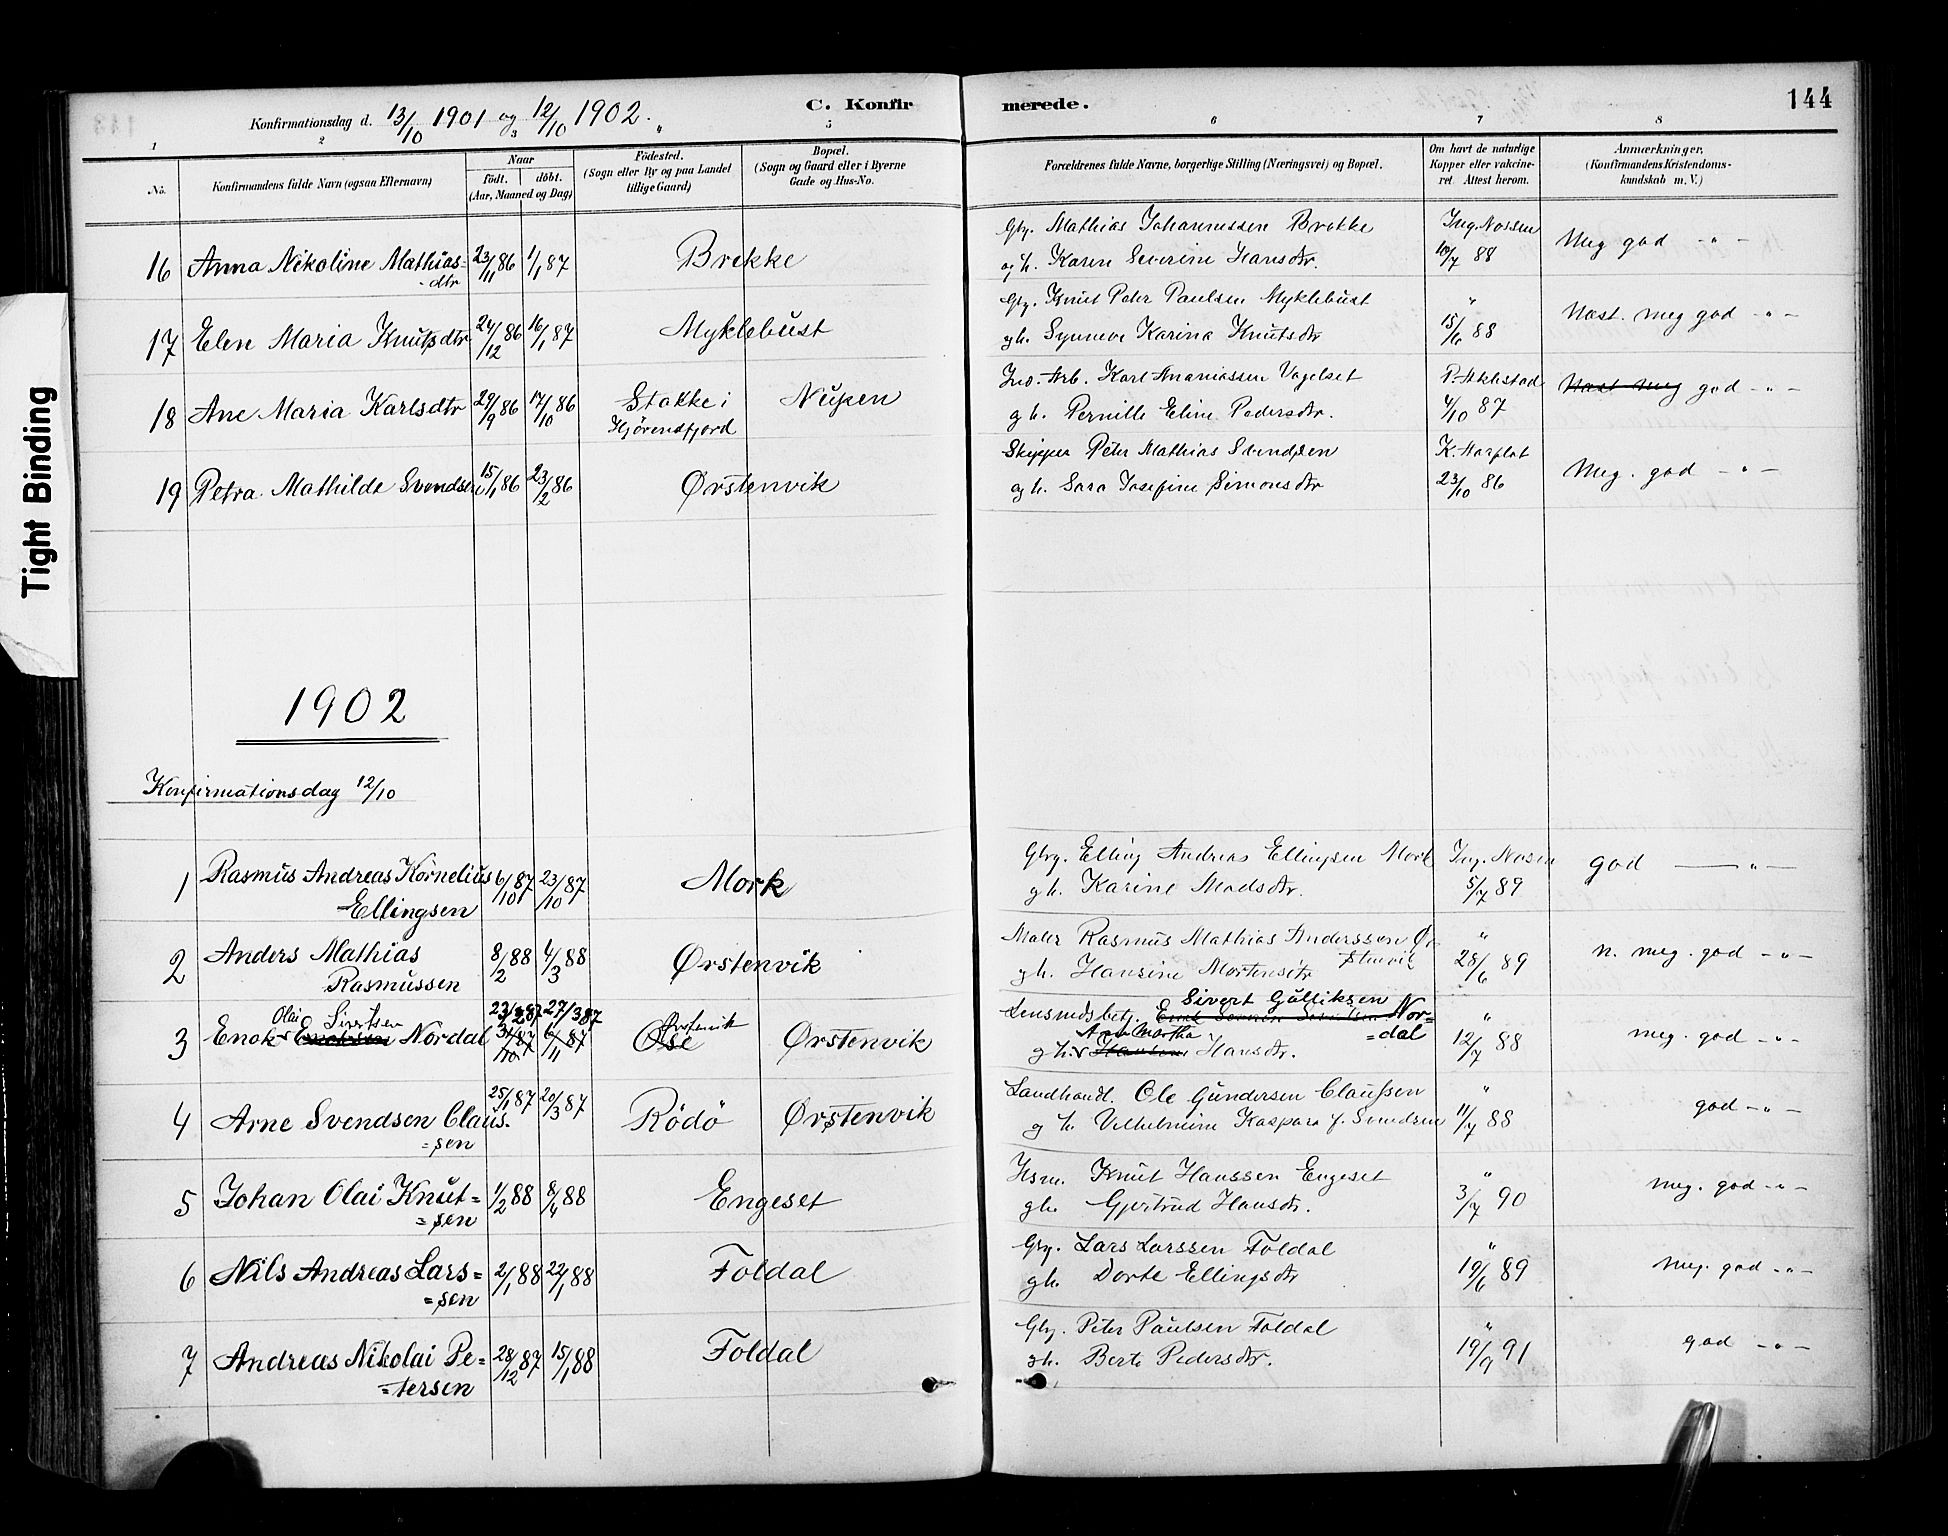 Tight Binding
Konfirmationsdag d. 13/10 1901 og 12/10 1902.
C. Konfir
merede.
144
1 2 3 5
6 7 8
No.
Konfirmandens fulde Navn (ogsaa Efternavn)
Naar
födt. döbt.
(Aar, Maaned og Dag)
Födested.
(Sogn eller By og paa Landet
tillige Gaard)
Bopæl.
(Sogn og Gaard eller i Byerne
Gade og Hus-No.
Forældrenes fulde Navne, borgerlige Stilling (Næringsvei) og Bopæl.
Om havt de naturlige
Kopper eller vakcine-
ret. Attest herom.
Anmærkninger,
(Konfirmandens Kristendoms-
kundskab m. V.)
16 Anna Nikoline Mathias= 23/11 86 1/1 87 Brekke
- dtr
Gbr. Mathias Johannessen Brekke Ing. Nossen
og h. Karen Severine Hansdtr. 10/7 88 Meg god - " -
17 Elen Maria Knutsdtr 24/12 86 16/1 87 Myklebust
Gbr. Knut Peter Paulsen Myklebust "
gh. Synneve Karina Knutsdtr 15/6 88 Næst. meg god - " -
18 Ane Maria Karlsdtr 29/9 86 17/10 86 Stokke i Nupen
Hjörendfjord
Ind.-Arb. Karl Ananiassen Vagelset P. Aklestad
g h. Pernille Eline Pedersdtr. 4/10 87 Næst meg god - " -
19 Petra Mathilde Svendsen 15/1 86 23/2 86 Ørstenvik
Skipper Peter Mathias Svendsen K. Aarflot
og h. Sara Josefine Simonsdtr 23/10 86 Meg. god - " -
1902
Konfirmationsdag 12/10
1 Rasmus Andreas Kornelius 6/10 87 23/10 87 Mork
Ellingsen
Gbrg. Elling Andreas Ellingsen Mork Ing. Nosen
gh. Karine Madsdtr. 5/7 89 god - " -
2 Anders Mathias 8/2 88 4/3 88 Ørstenvik
Rasmussen
Maler Rasmus Mathias Anderssen Ør
stenvik
gh. Hansine Mortensdtr 28/6 89 n. meg. god - " -
Olai Sivertsen 27/3 87 Ørstenvik
3 Enok Enoksen Nordal Ose Ørstenvik
Sivert Gulliksen
Lensmdsbetj. Nor=
=dal
Ane Martha
g h. Hansdtr. 12/7 88 meg. god - " -
4 Arne Svendsen Claus. 25/1 87 20/3 87 Rödö Ørstenvik
=sen
Landhandl. Ole Gundersen Claussen "
g h. Vilhelmine Kaspara f. Svendsen 11/7 88 god - " -
5 Johan Olai Knut= 1/2 88 8/4 88 Engeset
=sen
Hsm. Knut Hanssen Engeset "
gh. Gjertrud Hansdtr. 3/7 90 meg. god - " -
6 Nils Andreas Lars= 2/1 88 22/1 88 Foldal
=sen
Gbr. Lars Larssen Foldal "
gh. Dorte Ellingsdtr 19/6 89 meg. god - " -
7 Andreas Nikolai Pe= 28/12 87 15/1 88 Foldal
=tersen
Gbr. Peter Paulsen Foldal "
gh. Berte Pedersdtr. 19/9 91 god - " -